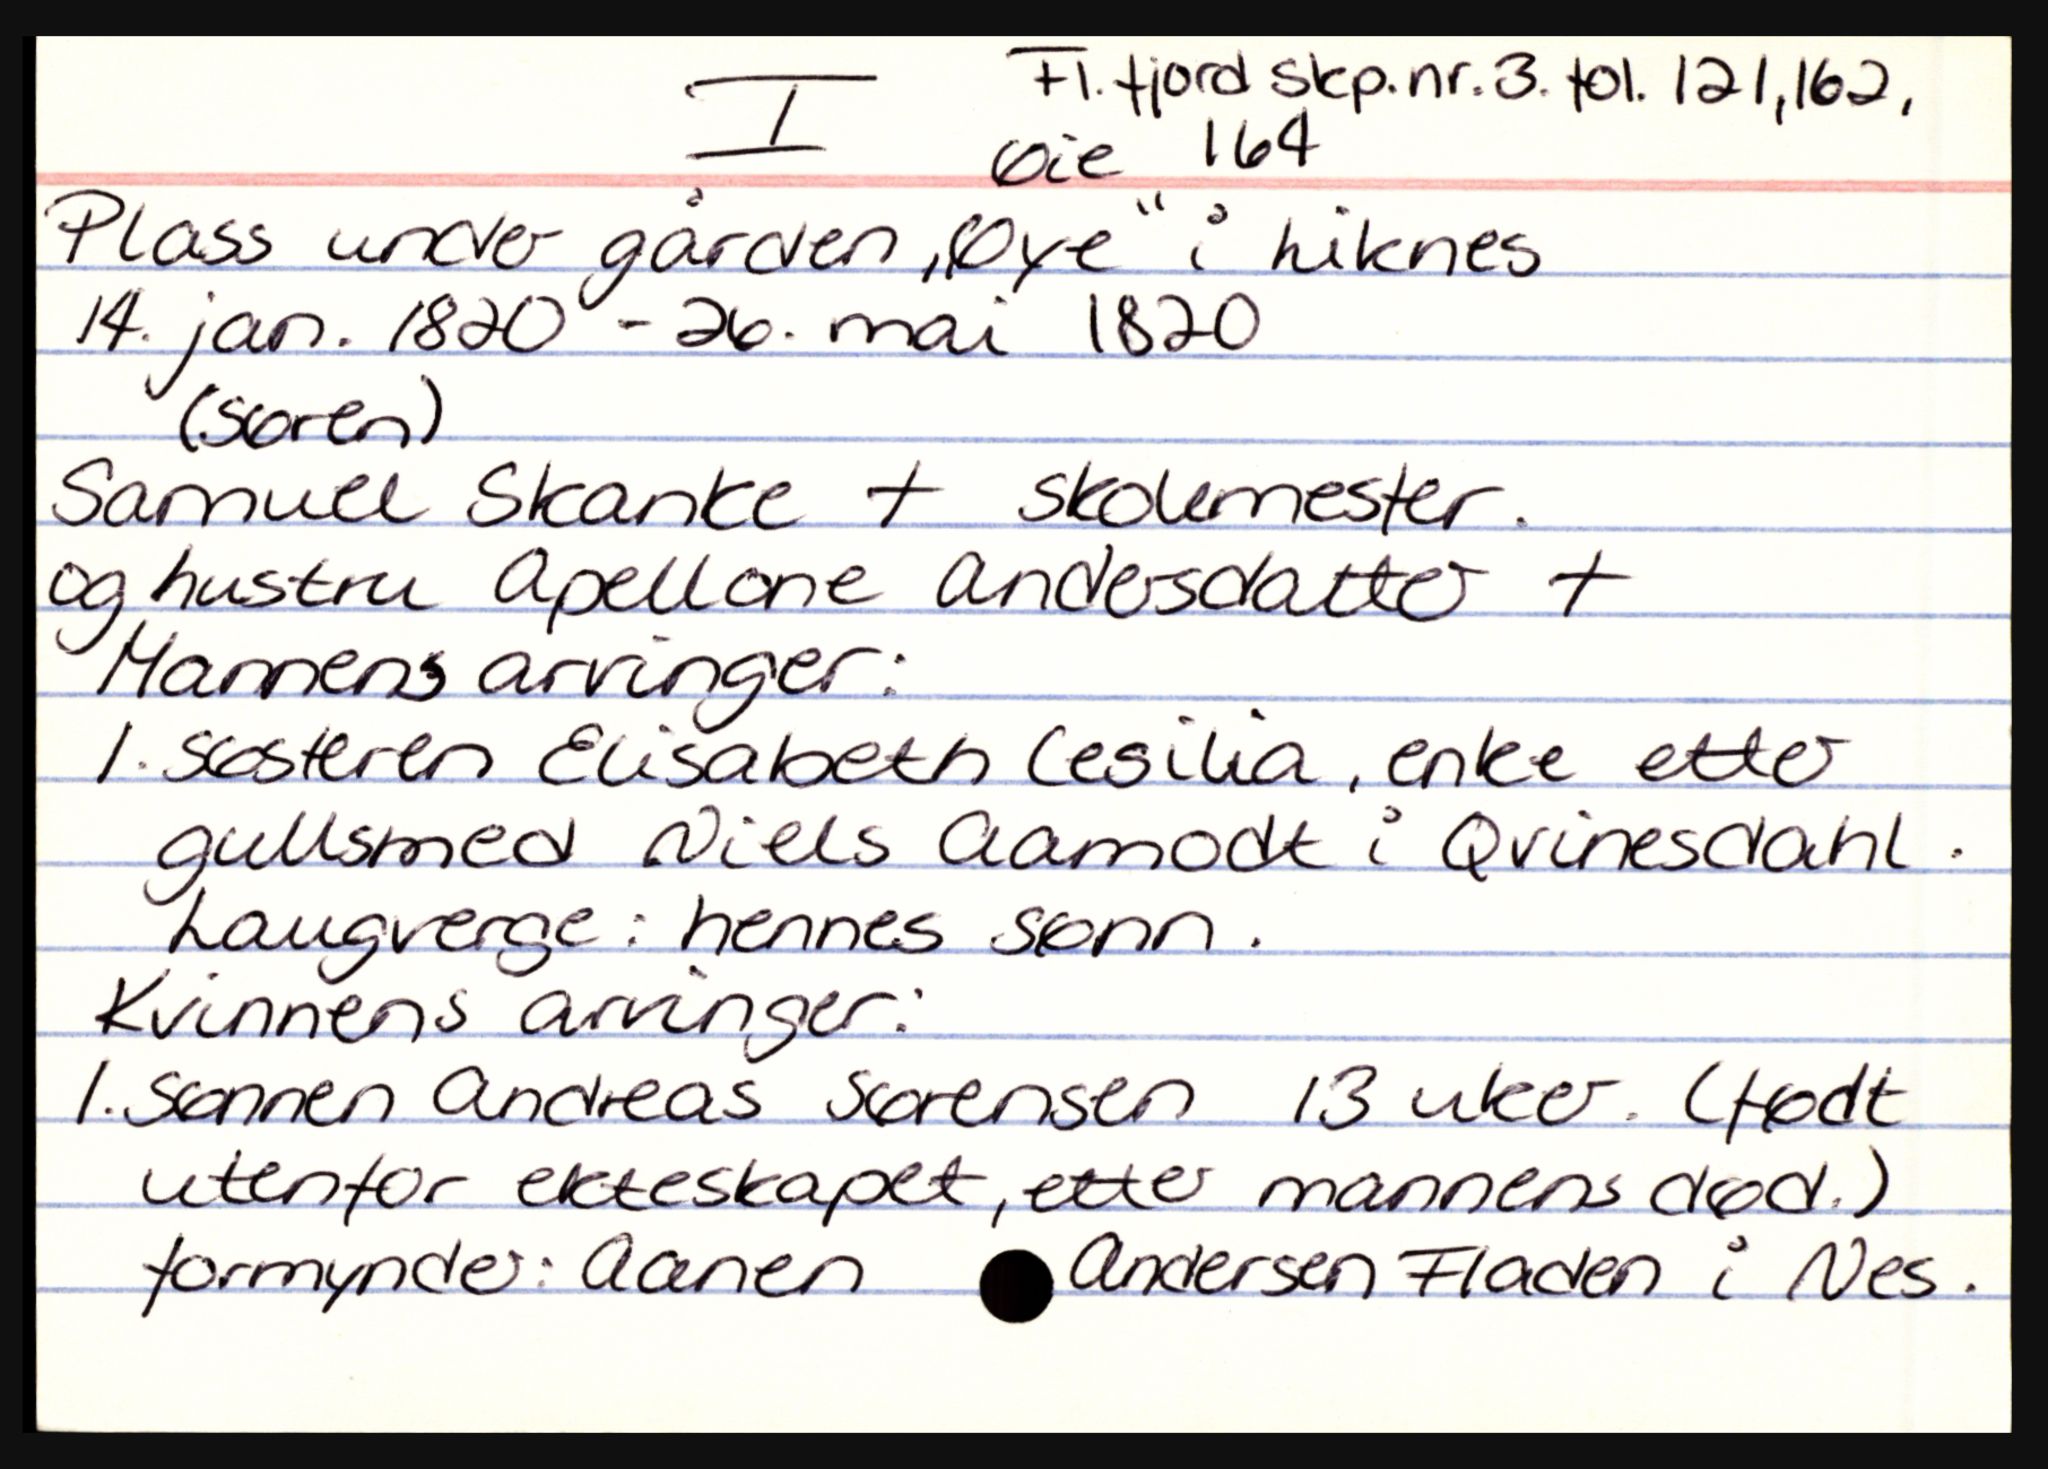 I Fl. fjord skp. nr. 3. fol. 121, 162,
Øie 164
Plass under gården „Øye“ i Liknes
14. jan. 1820 - 26. mai 1820
(Søren)
Samuel Skanke + skolemester.
og hustru Apellone Andersdatter +
Mannens arvinger:
1. søsteren Elisabeth Cesilia, enke etter
gullsmed Niels Aamodt i Qvinesdahl.
Laugverge: hennes sønn.
Kvinnens arvinger:
1. sønnen Andreas Sørensen 13 uker. (født
utenfor ekteskapet, etter mannens død.)
formynder: Aanen Andersen Fladen i Nes.